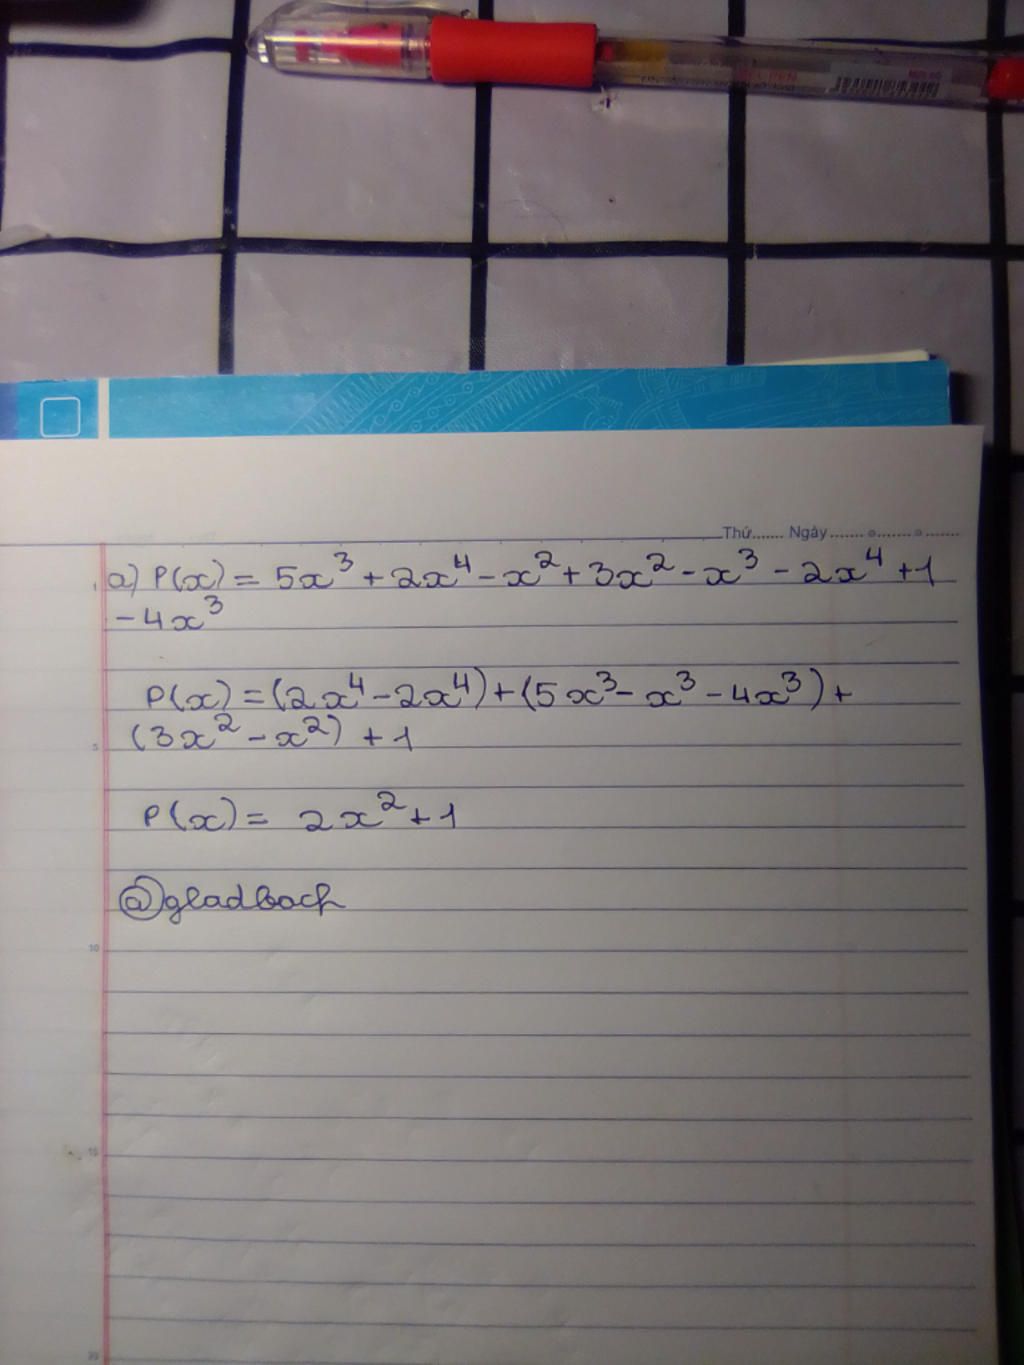 Thứ....... Ngày ....... o ....... o .......
a) P(x) = 5x³ + 2x⁴ - x² + 3x² - x³ - 2x⁴ + 1
- 4x³
P(x) = (2x⁴ - 2x⁴) + (5x³ - x³ - 4x³) +
(3x² - x²) + 1
P(x) = 2x² + 1
@gladbach
5
10
15
20